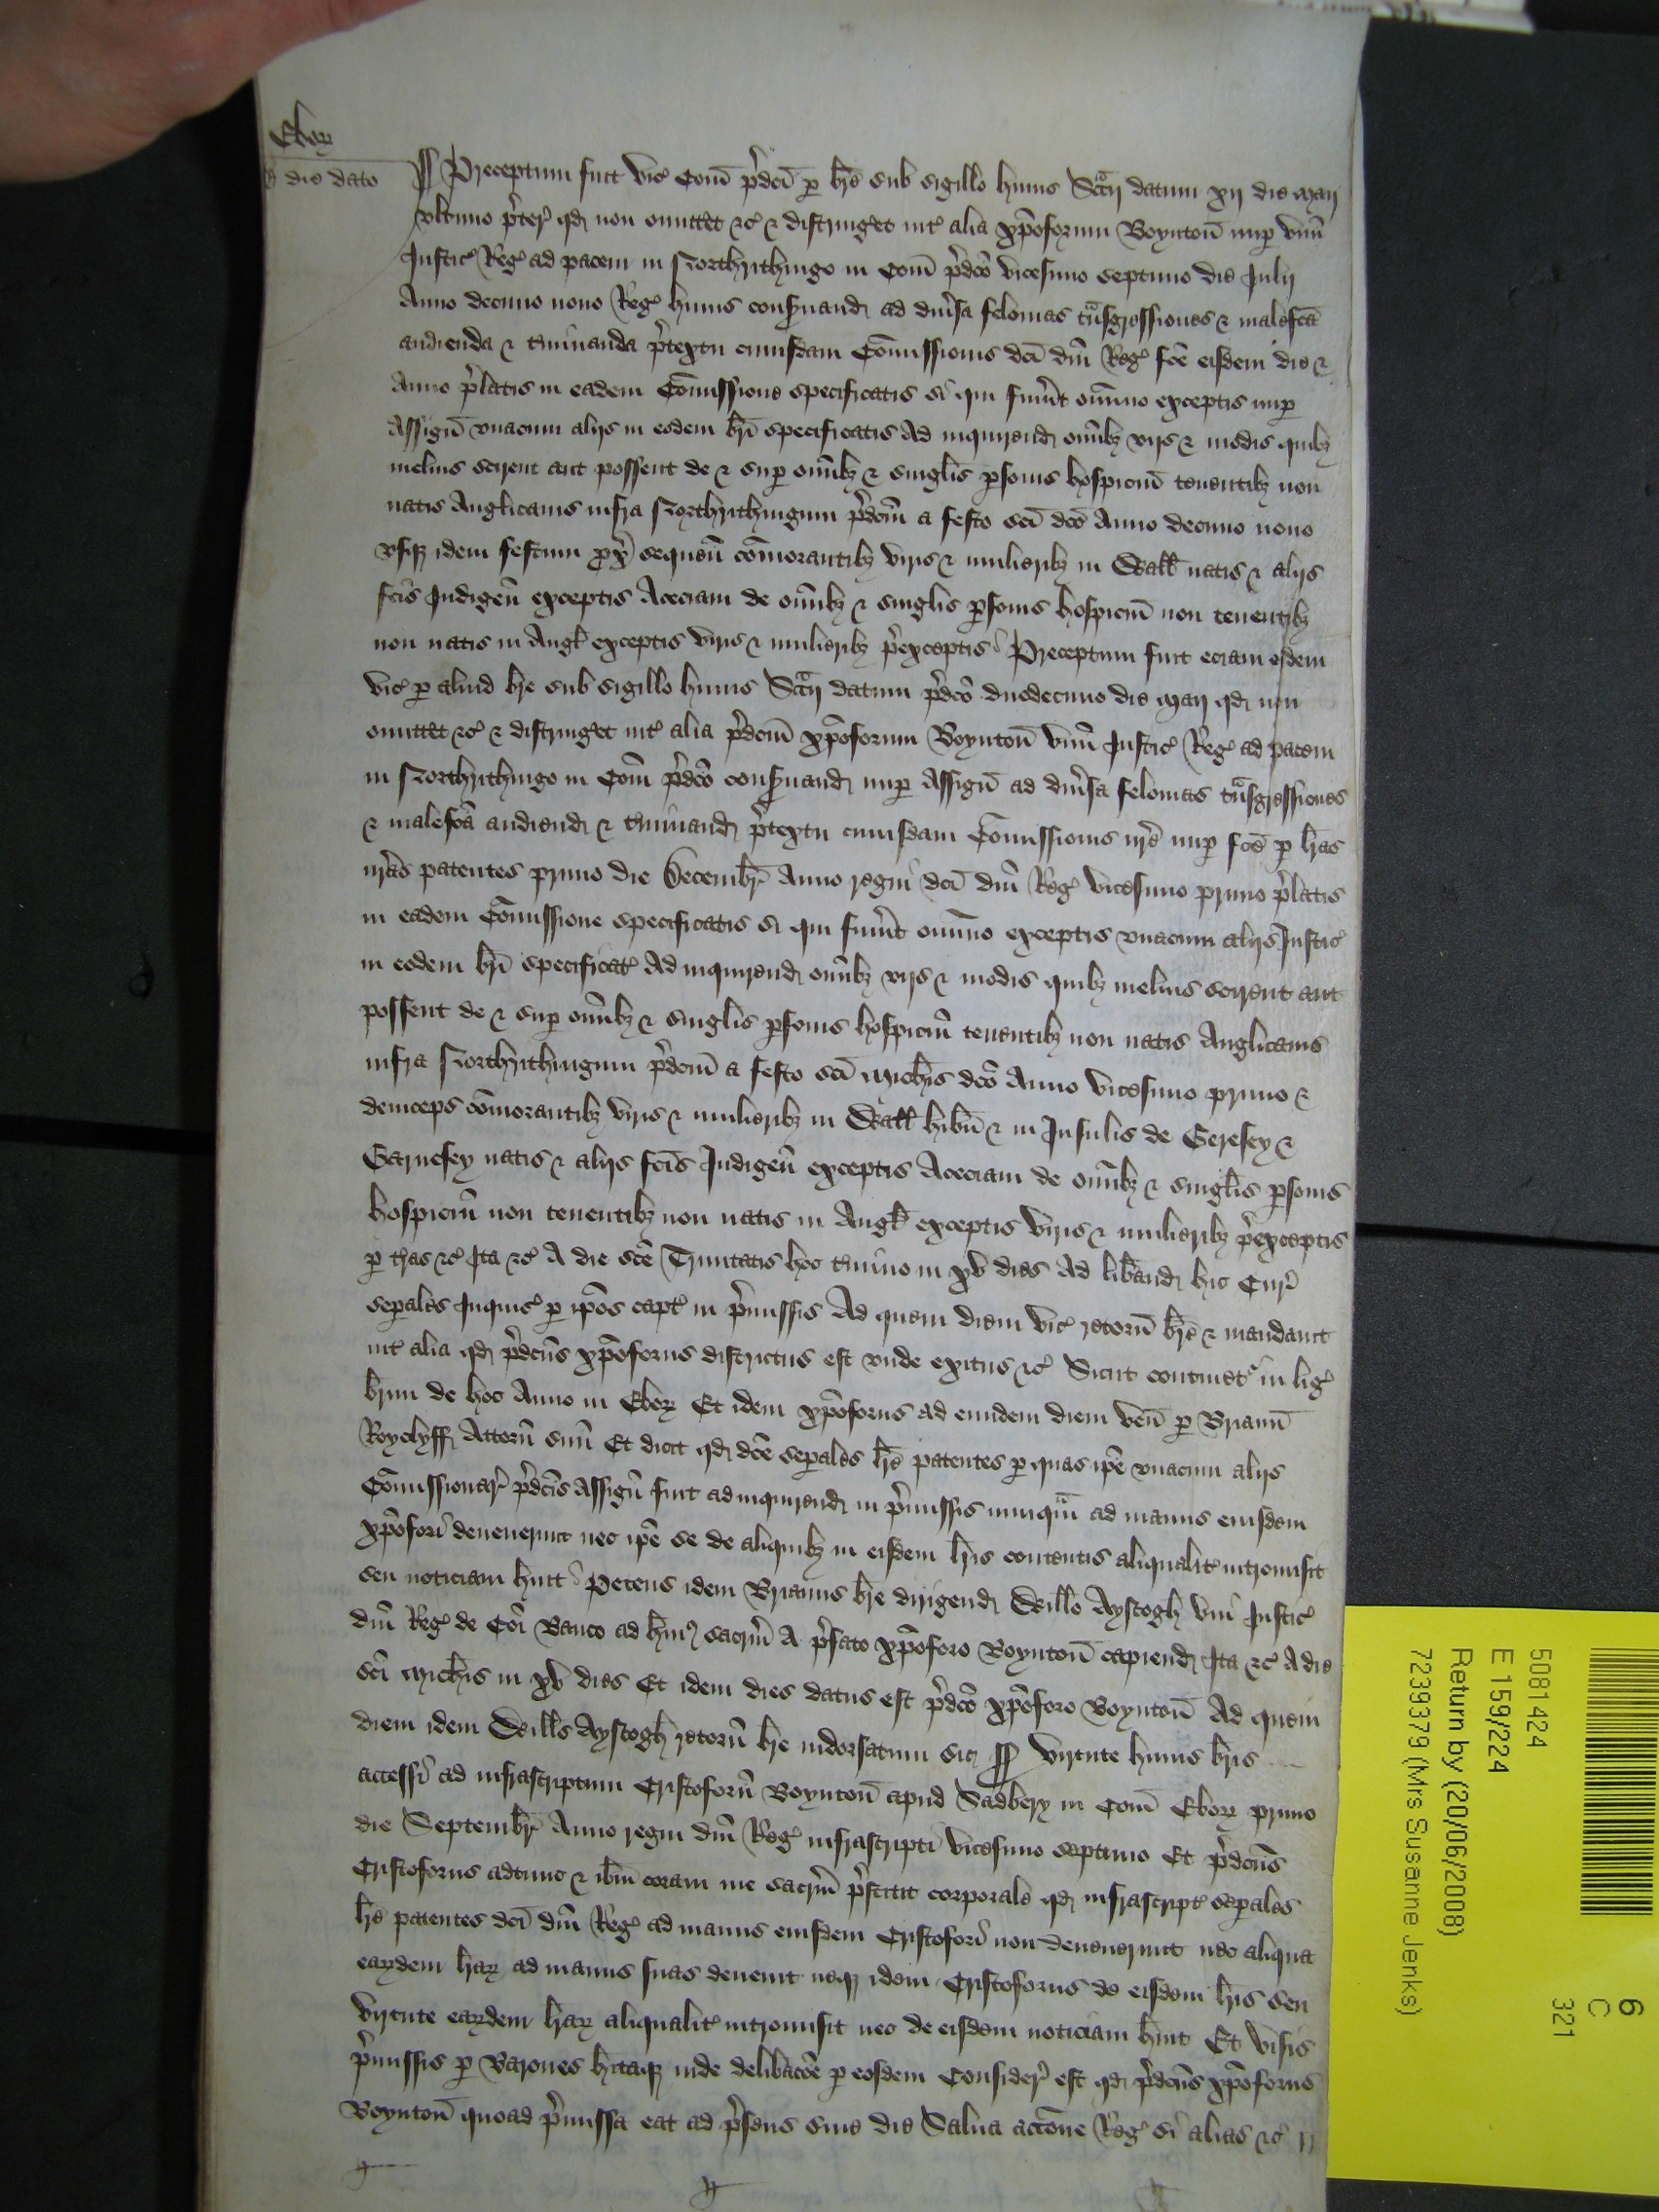 Ebor̄
die dato
Preceptum fuit vic̄ Com̄ p̄dc̄i p br̄e sub sigillo huius Scc̄ij datum xij die Maij
vltimo p̄ter̄ qd non omittet &c̄ & distringet int̄ alia xp̄oforum Boyntoñ nup vnū
Justic̄ Reḡ ad pacem in Northrithingo in Com̄ p̄dc̄o vicesimo septimo die Julij
Anno decimo nono Reḡ huius conseruand ad diu̅sa felonias tn̄sgressiones & malefc̄a
audienda & t̄minanda p̄textu cuiusdam Com̄issionis dc̄i dn̄i Reḡ fc̄e eisdem die &
Anno p̄latis in eadem Com̄issione specificatis si qui fu̅int om̄ino exceptis nup
Assign̄ vnacum alijs in eodem br̄i specificatis Ad inquirend om̄ibȝ vijs & modis quibȝ
melius scirent aut possent de & sup om̄ibȝ & singlis p̱sonis hospiciū tenentibȝ non
natis Anglicanis infra Northrithingum p̄dcm̄ a festo sc̄i dc̄o Anno decimo nono
vsqȝ idem festum prox̄ sequen̄ com̄orantibȝ viris & mulieribȝ in Wall̄ natis & alijs
fc̄is Indigen̄ exceptis Aceciam de om̄ibȝ & singlis p̱sonis hospiciū non tenentibȝ
non natis in Angl̄ exceptis viris & mulieribȝ p̄exceptis Preceptum fuit eciam eidem
vic̄ p aliud br̄e sub sigillo huius Scc̄ij datum p̄dc̄o duodecimo die Maij qd non
omittet &c̄ & distringet int̄ alia p̄dcm̄ xp̄oforum Boyntoñ vnū Justic̄ Reḡ ad pacem
in Northrithingo in Com̄ p̄dc̄o conseruand nup Assign̄ ad diu̅sa felonias tn̄sgressiones
& malefc̄a audiend & t̄minand p̄textu cuiusdam Com̄issionis nr̄e nup fc̄e p lr̄as
nr̄as patentes primo die Decembr̄ Anno regni dc̄i dn̄i Reḡ vicesimo primo p̄latis
in eadem Com̄issione specificatis si qui fu̅int om̄ino exceptis vnacum alijs Justic̄
in eodem br̄i specificat̄ Ad inquirend om̄ibȝ vijs & modis quibȝ melius scirent aut
possent de & sup om̄ibȝ & singlis p̱sonis hospiciū tenentibȝ non natis Anglicanis
infra Northrithingum p̄dcm̄ a festo sc̄i Mich̄is dc̄o Anno vicesimo primo &
deinceps com̄orantibȝ viris & mulieribȝ in Wall̄ hib̄n & in Insulis de Geresey &
Garnesey natis & alijs fc̄is Indigen̄ exceptis Aceciam de om̄ibȝ & singlis p̱sonis
hospiciū non tenentibȝ non natis in Angl̄ exceptis viris & mulieribȝ p̄exceptis
p t̄ras &c̄ Ita &c̄ A die sc̄e Trinitatis hoc t̄mino in xv dies Ad lib̄and hic Cur̄
sep̱ales Inquis̄ p ip̄os capt̄ in p̄missis Ad quem diem vic̄ retorn̄ br̄e & mandauit
int̄ alia qd p̄dcūs xp̄oforus districtus est vnde exitus &c̄ Sicut continet̄ in liḡ
br̄ium de hoc Anno in Ebor̄ Et idem xp̄oforus ad eundem diem ven̄ p Brianū
Royclyff Attorn̄ suū Et dicit qd dc̄e sep̱ales lr̄e patentes p quas ip̄e vnacum alijs
Com̄issionar̄ p̄dc̄is Assign̄ fuit ad inquirend in p̄missis nunqͣm ad manus eiusdem
xp̄ofori deuenerunt nec ip̄e se de aliquibȝ in eisdem lr̄is contentis aliqualit̄ intromisit
seu noticiam h̄uit Petens idem Brianus br̄e dirigend Will̄o Ayscogh vni Justic̄
dn̄i Reḡ de Cōi Banco ad h̄mōi sacrm̄ A p̄fato xp̄oforo Boyntoñ capiend Ita &c̄ A die
sc̄i Mich̄is in xv dies Et idem dies datus est p̄dc̄o xp̄oforo Boyntoñ Ad quem
diem idem Will̄s Ayscogh retorn̄ br̄e indorsatum sic Virtute huius br̄is
accessi ad infrascriptum Cristoforū Boyntoñ apud Sadbery in Com̄ Ebor̄ primo
die Septembr̄ Anno regni dn̄i Reḡ infrascripti vicesimo septimo Et p̄dcūs
Cristoforus adtunc & ibm̄ coram me sacrm̄ p̄stitit corporale qd infrascript̄ sep̱ales
lr̄e patentes dc̄i dn̄i Reḡ ad manus eiusdem Cristofori non deuenerunt nec aliqua
eardem lr̄ar̄ ad manus suas deuenit neqȝ idem Cristoforus de eisdem lr̄is seu
virtute eardem lr̄ar̄ aliqualit̄ intromisit nec de eisdem noticiam h̄uit Et visis
p̄missis p Barones h̄itaqȝ inde delib̄acōe p eosdem Consider̄ est qd p̄dcūs xp̄oforus
Boyntoñ quoad p̄missa eat ad p̄sens sine die Salua acc̄one Reḡ si alias &c̄
5081424
E 159/224
Return by (20/06/2008)
7239379 (Mrs Susanne Jenks)
6
C
321